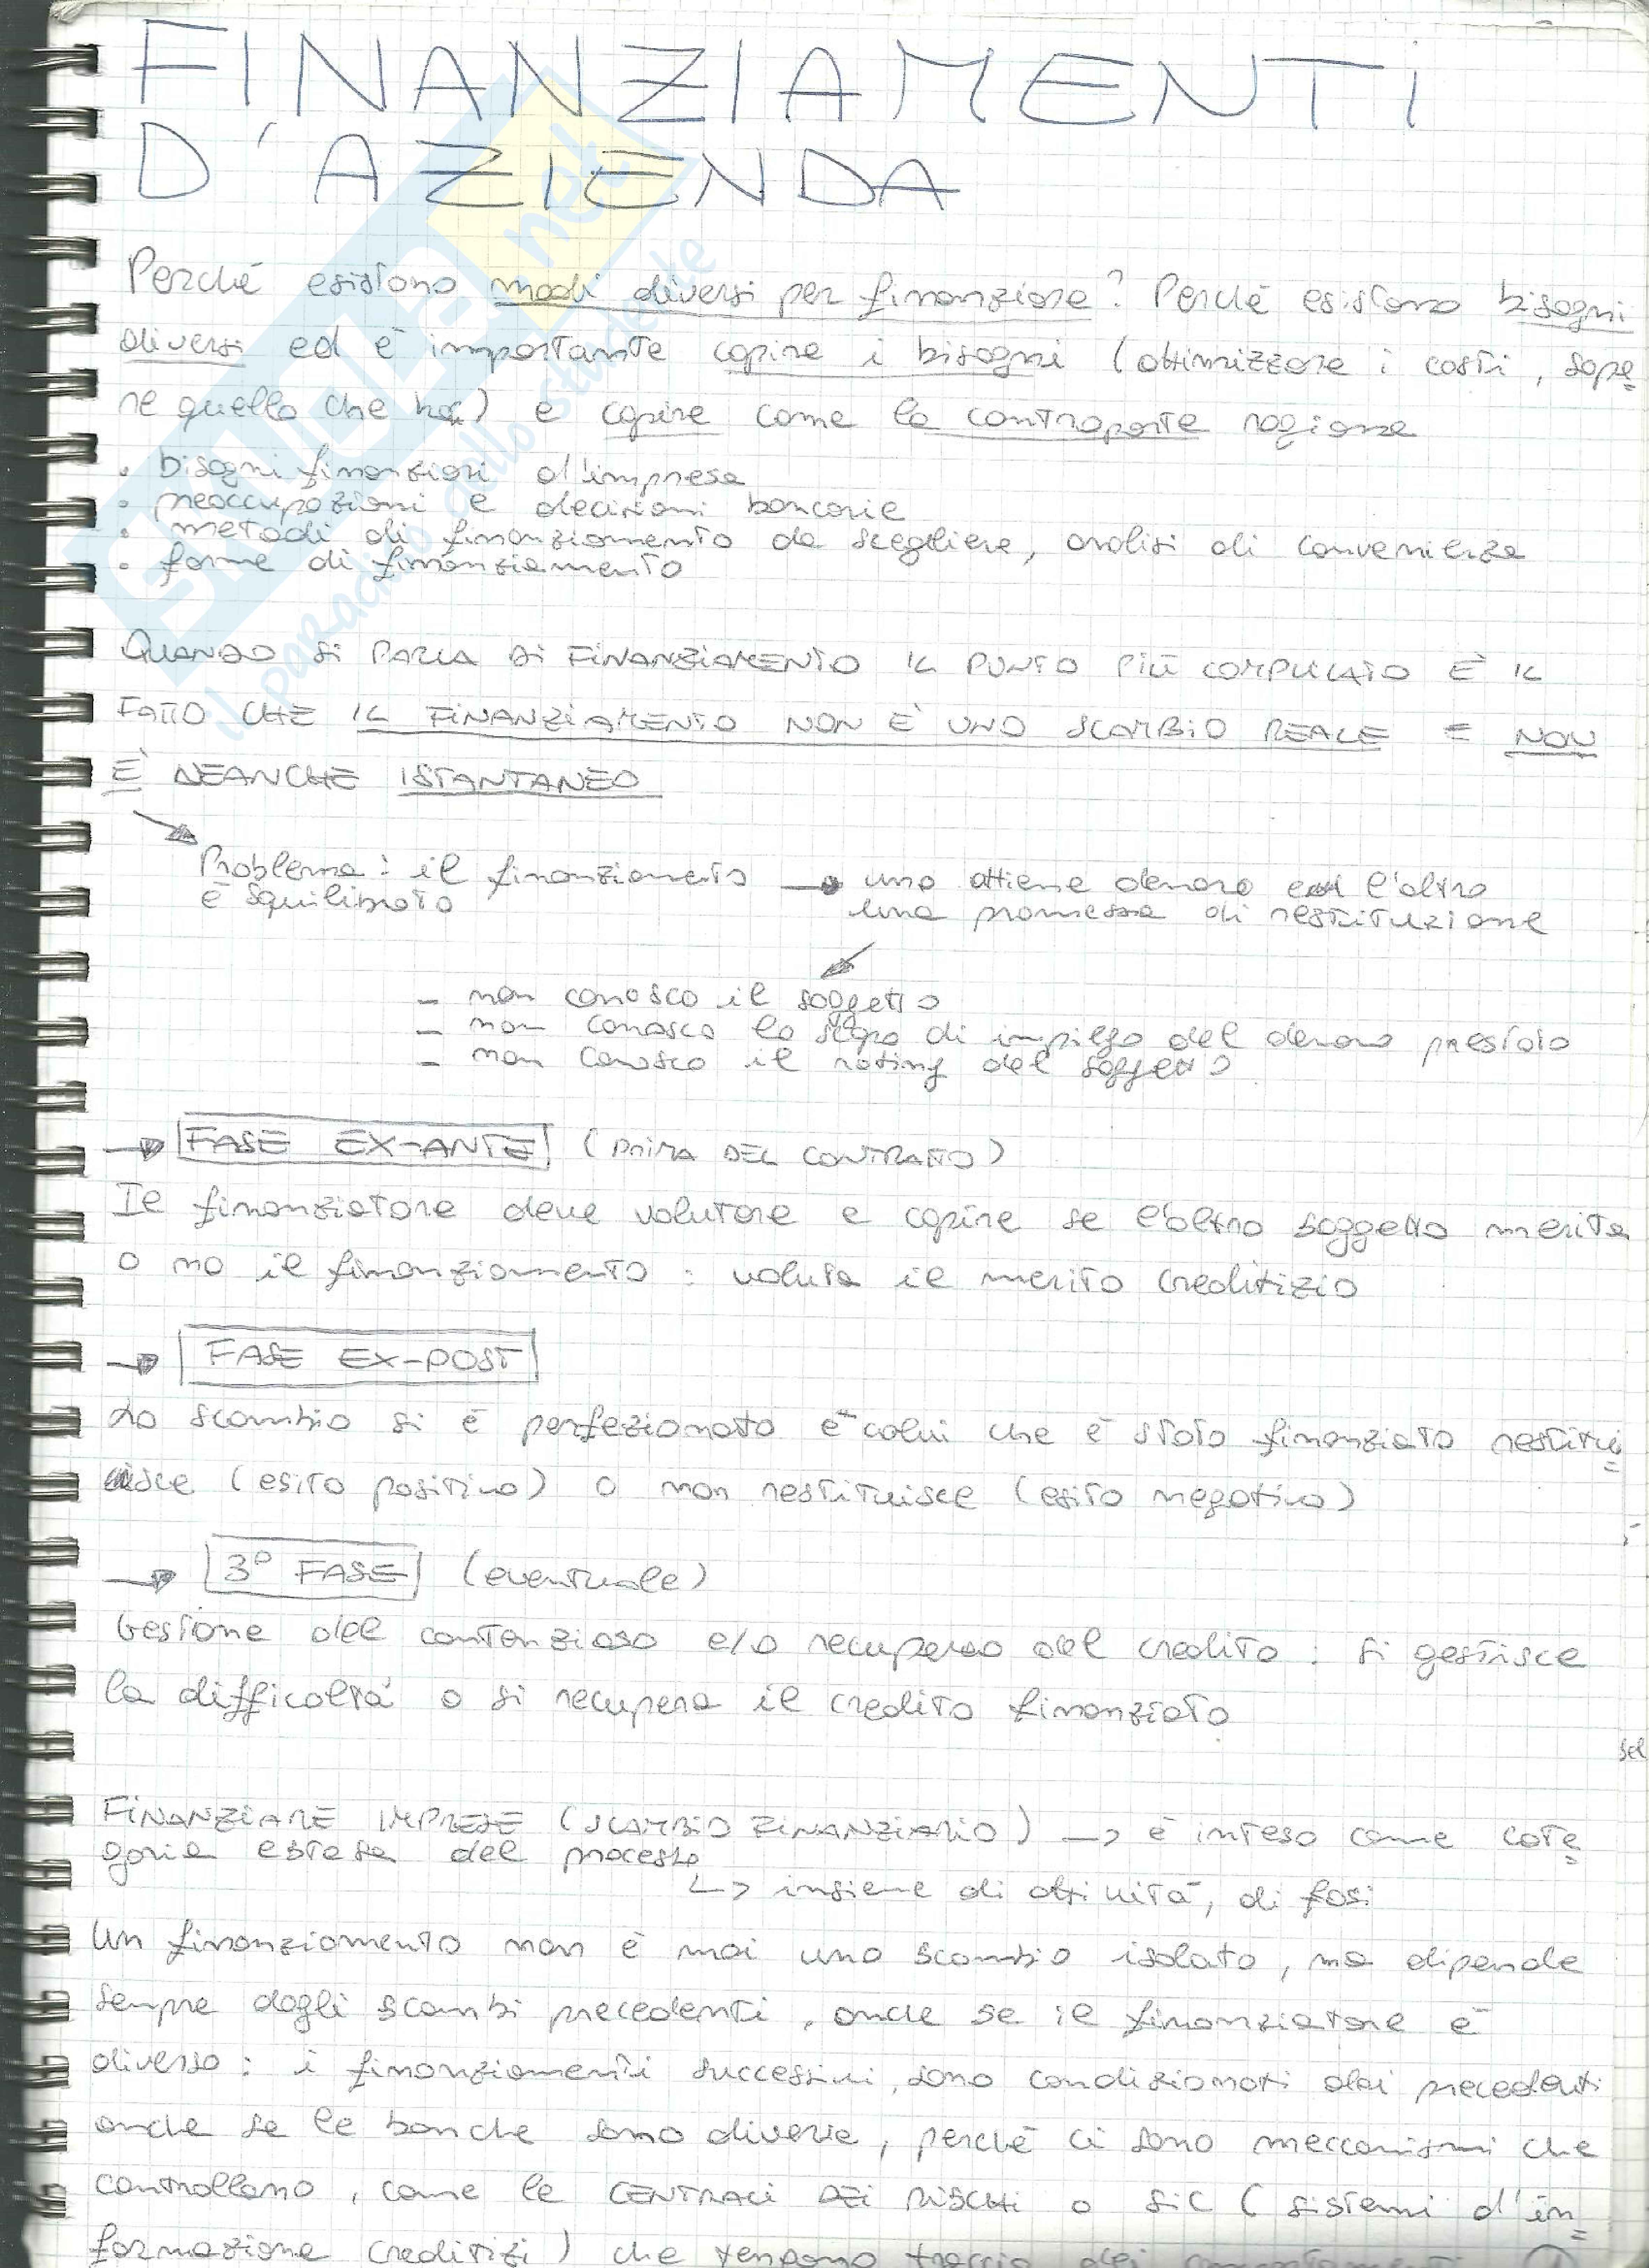 FINANZIAMENTI
D'AZIENDA
Perché esistono modi diversi per finanziare? Perché esistono bisogni
diversi ed è importante capire i bisogni (ottimizzare i costi, sape=
re quello che ho) e capire come la controparte ragiona
• bisogni finanziari d'impresa
• preoccupazioni e decisioni bancarie
• metodi di finanziamento da scegliere, analisi di convenienza
• forme di finanziamento
QUANDO SI PARLA DI FINANZIAMENTO IL PUNTO PIÙ COMPLICATO È IL
FATTO CHE IL FINANZIAMENTO NON È UNO SCAMBIO REALE E NON
È NEANCHE ISTANTANEO
Problema: il finanziamento → uno ottiene denaro ed l'altro
è squilibrato una promessa di restituzione
- non conosco il soggetto
- non conosco lo scopo di impiego del denaro prestato
- non conosco il rating del soggetto
→ FASE EX-ANTE (PRIMA DEL CONTRATTO)
Il finanziatore deve valutare e capire se l'altro soggetto merita
o no il finanziamento: valuta il merito creditizio
→ FASE EX-POST
Lo scambio si è perfezionato e colui che è stato finanziato restitu=
isce (esito positivo) o non restituisce (esito negativo)
→ 3° FASE (eventuale)
Gestione del contenzioso e/o recupero del credito: si gestisce
la difficoltà o si recupera il credito finanziato
sel
FINANZIARE IMPRESE (SCAMBIO FINANZIARIO) → è inteso come cate=
goria estesa del processo
↳ insieme di attività, di fasi
Un finanziamento non è mai uno scambio isolato, ma dipende
sempre dagli scambi precedenti, anche se il finanziatore è
diverso: i finanziamenti successivi, sono condizionati dai precedenti
anche se le banche sono diverse, perché ci sono meccanismi che
controllano, come le CENTRALI DEI RISCHI o SIC (sistemi d'in=
formazione creditizi) che tengono traccia dei
SKUOLA.net
il paradiso dello studente